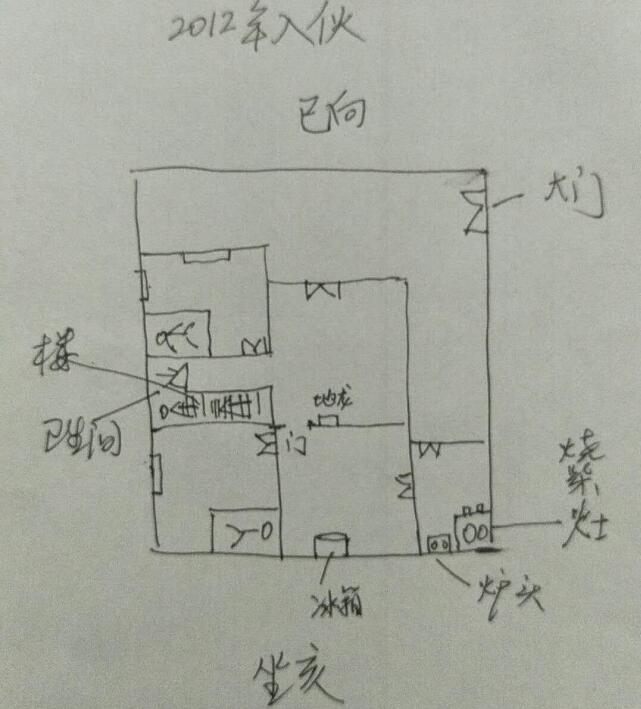 2012年入伙
巳向
大门
楼
卫生间
地龙
门
烧柴灶
冰箱
炉头
坐亥